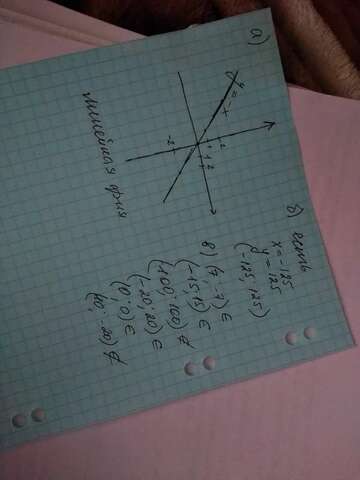 а)
y = -x
-2
2
1 2
Линейная ф-ия
б) есть
x = -125
y = 125
(-125, 125)
в) (7; -7) ∈
(-15; 15) ∈
(100; 100) ∉
(-20; 20) ∈
(0; 0) ∈